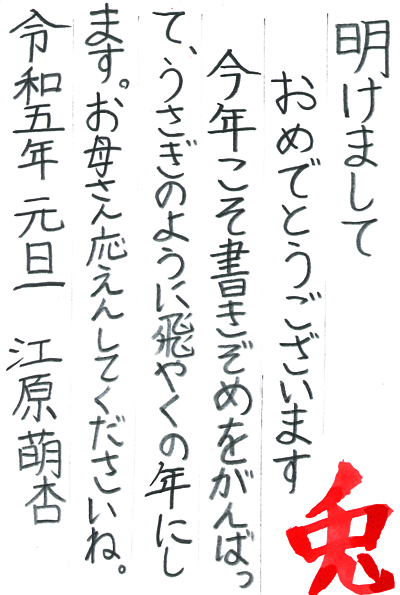 明けまして
おめでとうございます
今年こそ書きぞめをがんばっ
て、うさぎのように飛やくの年にし
ます。お母さん応えんしてくださいね。
令和五年 元旦 江原萌杏
兎